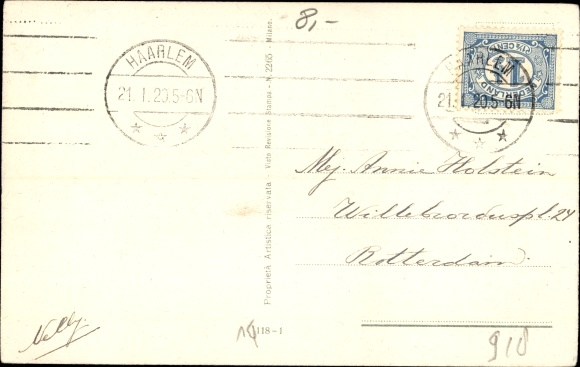 8,-
HAARLEM
21.1.20.5-6N
HAARLEM
21.1.20.5-6N
1½ CENT
NEDERLAND
Mej. Annie Holstein
Willebrorduspl. 24
Rotterdam.
Proprietà Artistica riservata - Visto Revisione Stampa - N. 2265 - Milano.
Nelly.
118-1
918